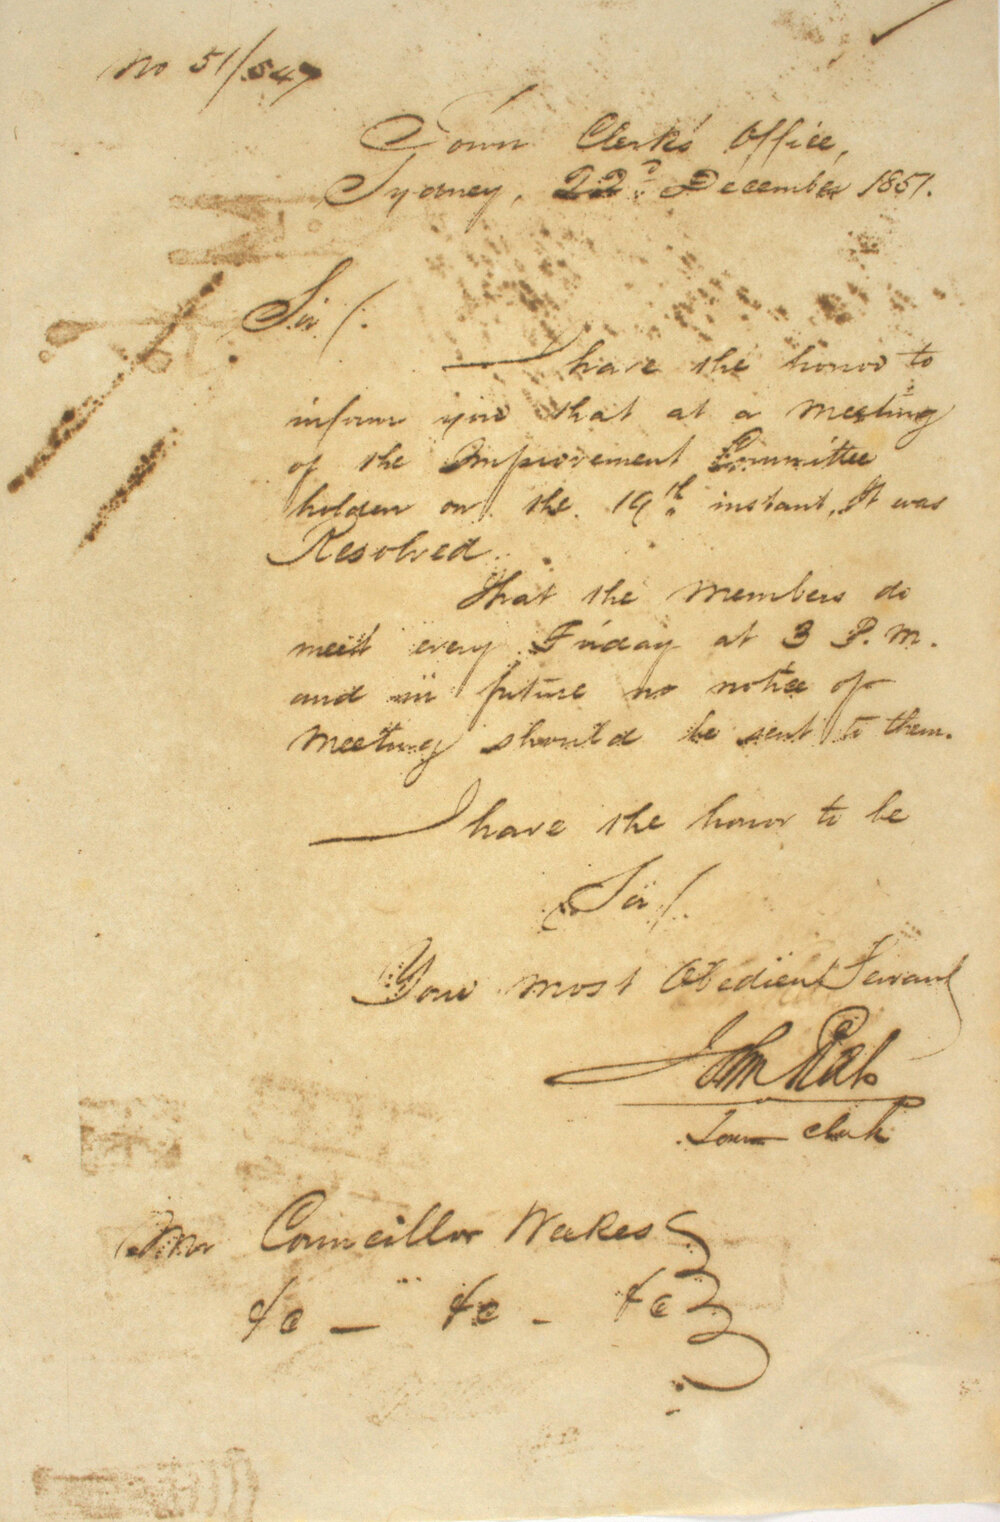 No 51/547
Town Clerk's Office,
Sydney, 22d December 1851.
Sir/.
I have the honor to
inform you that at a meeting
of the Improvement Committee
holden on the 19th instant, It was
Resolved.
That the Members do
meet every Friday at 3 P.M.
and in future no notice of
Meeting should be sent to them.
I have the honor to be
Sir/.
Your most Obedient Servant
John Rae
Town Clerk
Mr Councillor Weekes
&c - &c - &c